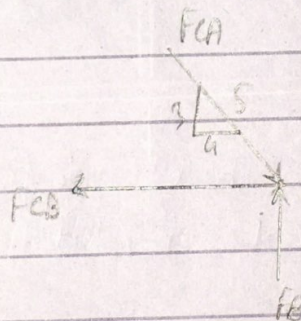 FCA
3 5
4
FCB